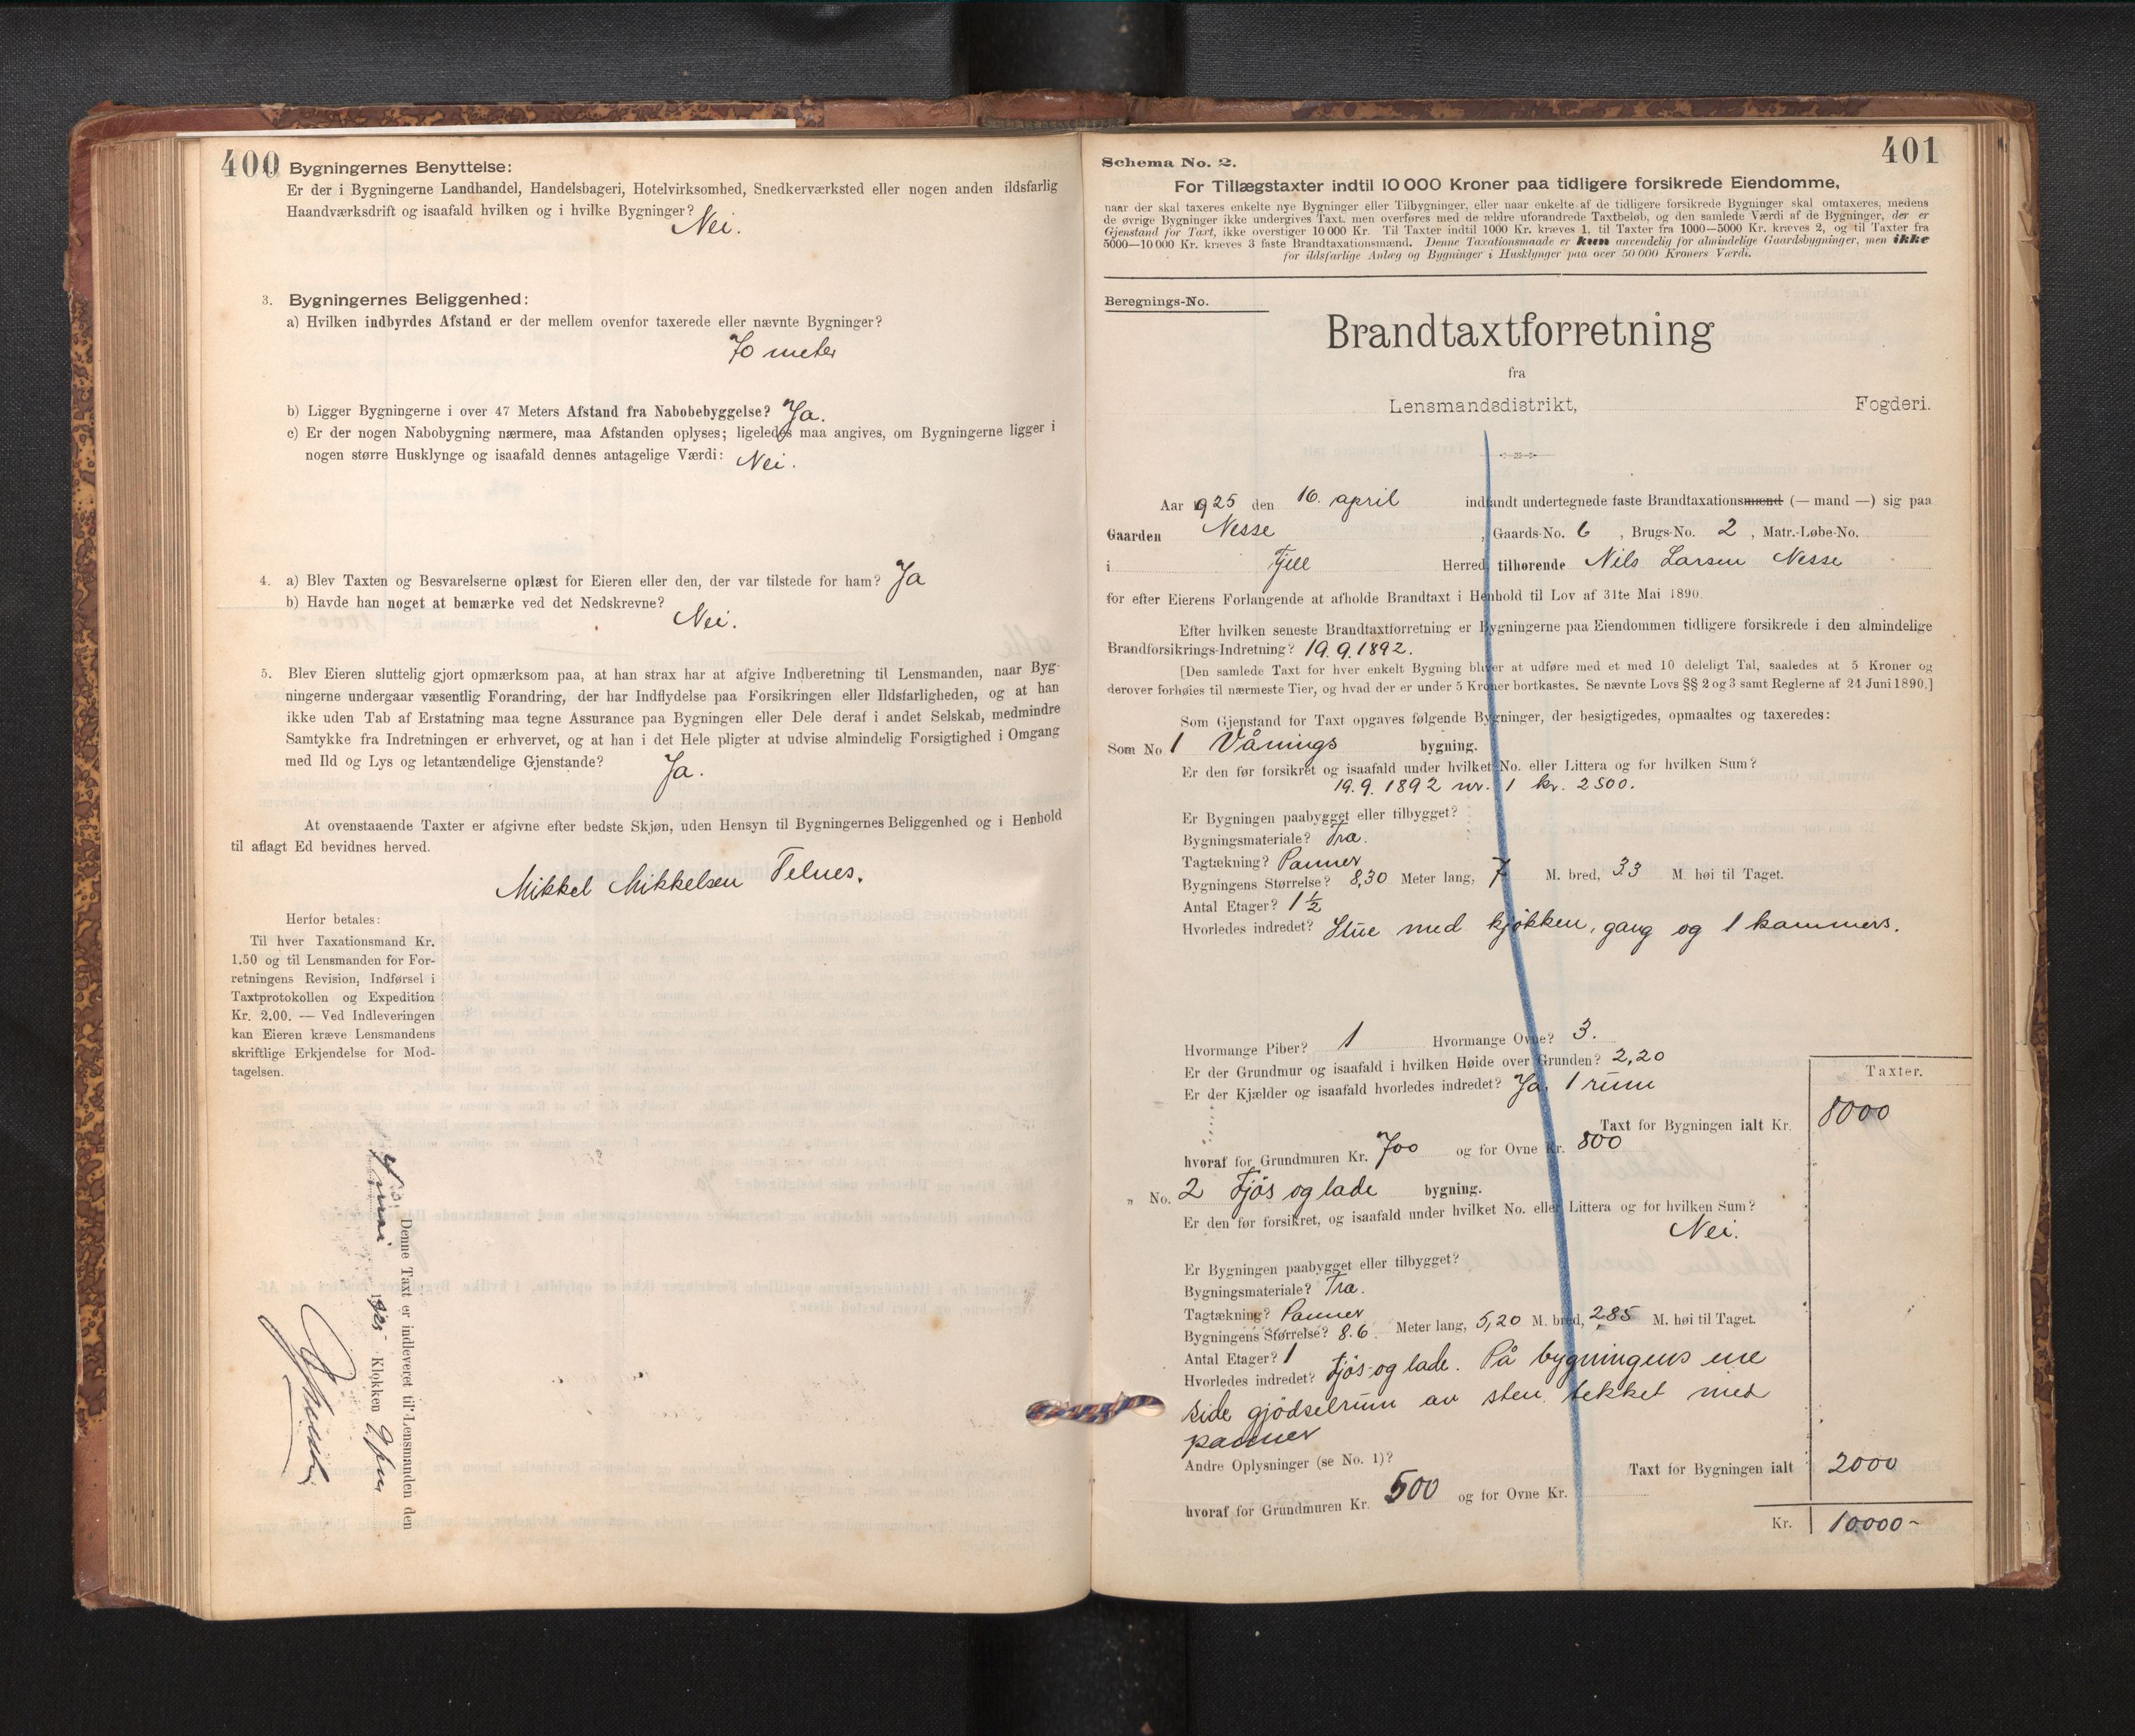 400
Bygningernes Benyttelse:
Er der i Bygningerne Landhandel, Handelsbageri, Hotelvirksomhed, Snedkerværksted eller nogen anden ildsfarlig
Haandværksdrift og isaafald hvilken og i hvilke Bygninger? Nei.
3. Bygningernes Beliggenhed:
a) Hvilken indbyrdes Afstand er der mellem ovenfor taxerede eller nævnte Bygninger?
70 meter
b) Ligger Bygningerne i over 47 Meters Afstand fra Nabobebyggelse? Ja.
c) Er der nogen Nabobygning nærmere, maa Afstanden oplyses; ligeledes maa angives, om Bygningerne ligger i
nogen større Husklynge og isaafald dennes antagelige Værdi: Nei.
4. a) Blev Taxten og Besvarelserne oplæst for Eieren eller den, der var tilstede for ham? Ja
b) Havde han noget at bemærke ved det Nedskrevne? Nei.
5. Blev Eieren sluttelig gjort opmærksom paa, at han strax har at afgive Indberetning til Lensmanden, naar Byg-
ningerne undergaar væsentlig Forandring, der har Indflydelse paa Forsikringen eller Ildsfarligheden, og at han
ikke uden Tab af Erstatning maa tegne Assurance paa Bygningen eller Dele deraf i andet Selskab, medmindre
Samtykke fra Indretningen er erhvervet, og at han i det Hele pligter at udvise almindelig Forsigtighed i Omgang
med Ild og Lys og letantændelige Gjenstande? Ja.
At ovenstaaende Taxter er afgivne efter bedste Skjøn, uden Hensyn til Bygningernes Beliggenhed og i Henhold
til aflagt Ed bevidnes herved.
Mikkel Mikkelsen Telnes.
Herfor betales:
Til hver Taxationsmand Kr.
1.50 og til Lensmanden for For-
retningens Revision, Indførsel i
Taxtprotokollen og Expedition
Kr. 2.00. — Ved Indleveringen
kan Eieren kræve Lensmandens
skriftlige Erkjendelse for Mod-
tagelsen.
Denne Taxt er indleveret til Lensmanden den
mai 1925 Klokken
401
Schema No. 2.
For Tillægstaxter indtil 10 000 Kroner paa tidligere forsikrede Eiendomme,
naar der skal taxeres enkelte nye Bygninger eller Tilbygninger, eller naar enkelte af de tidligere forsikrede Bygninger skal omtaxeres, medens
de øvrige Bygninger ikke undergives Taxt, men overføres med de ældre uforandrede Taxtbeløb, og den samlede Værdi af de Bygninger, der er
Gjenstand for Taxt, ikke overstiger 10 000 Kr. Til Taxter indtil 1000 Kr. kræves 1, til Taxter fra 1000—5000 Kr. kræves 2, og til Taxter fra
5000—10 000 Kr. kræves 3 faste Brandtaxationsmænd. Denne Taxationsmaade er kun anvendelig for almindelige Gaardsbygninger, men ikke
for ildsfarlige Anlæg og Bygninger i Husklynger paa over 50 000 Kroners Værdi.
Beregnings-No.
Brandtaxtforretning
fra
Lensmandsdistrikt, Fogderi.
Aar 1925 den 16. april indfandt undertegnede faste Brandtaxationsmænd (— mand —) sig paa
Gaarden Nesse, Gaards-No. 6, Brugs-No. 2, Matr.-Løbe-No.
i Fjell Herred tilhørende Nils Larsen Nesse
for efter Eierens Forlangende at afholde Brandtaxt i Henhold til Lov af 31te Mai 1890.
Efter hvilken seneste Brandtaxtforretning er Bygningerne paa Eiendommen tidligere forsikrede i den almindelige
Brandforsikrings-Indretning? 19.9.1892.
[Den samlede Taxt for hver enkelt Bygning bliver at udføre med et med 10 deleligt Tal, saaledes at 5 Kroner og
derover forhøies til nærmeste Tier, og hvad der er under 5 Kroner bortkastes. Se nævnte Lovs §§ 2 og 3 samt Reglerne af 24 Juni 1890.]
Som Gjenstand for Taxt opgaves følgende Bygninger, der besigtigedes, opmaaltes og taxeredes:
Som No 1 Vånings bygning.
Er den før forsikret og isaafald under hvilket No. eller Littera og for hvilken Sum?
19.9.1892 nr. 1 kr. 2500.
Er Bygningen paabygget eller tilbygget?
Bygningsmateriale? Træ.
Tagtækning? Panner
Bygningens Størrelse? 8,30 Meter lang, 7 M. bred, 33 M. høi til Taget.
Antal Etager? 1½
Hvorledes indredet? Stue med kjøkken, gang og 1 kammers.
Hvormange Piber? 1 Hvormange Ovne? 3.
Er der Grundmur og isaafald i hvilken Høide over Grunden? 2,20
Er der Kjælder og isaafald hvorledes indredet? Ja, 1 rum
Taxter.
Taxt for Bygningen ialt Kr. 8000
hvoraf for Grundmuren Kr. 700 og for Ovne Kr. 800
„ No. 2 Fjøs og lade bygning.
Er den før forsikret, og isaafald under hvilket No. eller Littera og for hvilken Sum?
Nei.
Er Bygningen paabygget eller tilbygget?
Bygningsmateriale? Træ.
Tagtækning? Panner
Bygningens Størrelse? 8.6 Meter lang, 5,20 M. bred, 2,85 M. høi til Taget.
Antal Etager? 1
Hvorledes indredet? Fjøs og lade. På bygningens ene
side gjødselrum av sten tekket med
panner
Andre Oplysninger (se No. 1)?
Taxt for Bygningen ialt 2000
hvoraf for Grundmuren Kr. 500 og for Ovne Kr.
Kr. 10000-